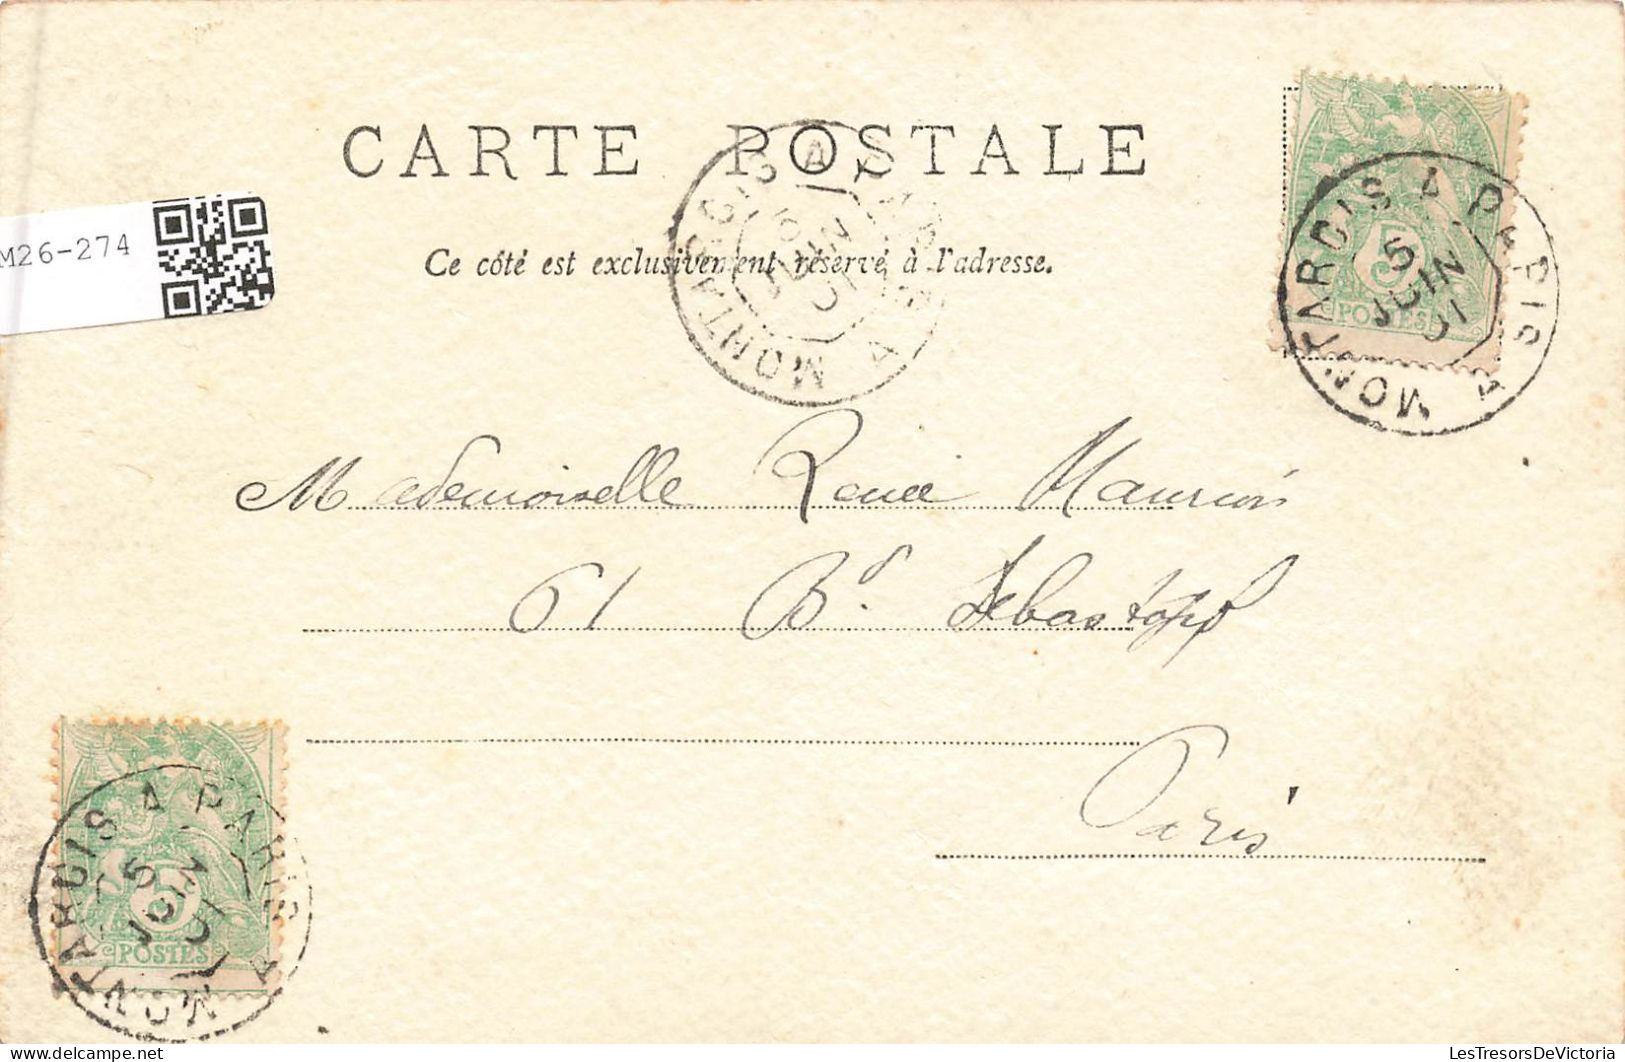 CARTE POSTALE
Ce côté est exclusivement réservé à l'adresse.
M26-274
MONTARGIS A PARIS A
5
JUIN
01
MONTARGIS A PARIS A
5
JUIN
01
5
POSTES
Mademoiselle Renée
61 Bd. Sébastopol
Paris
MONTARGIS A PARIS A
5
JUIN
01
5
POSTES
LesTresorsDeVictoria